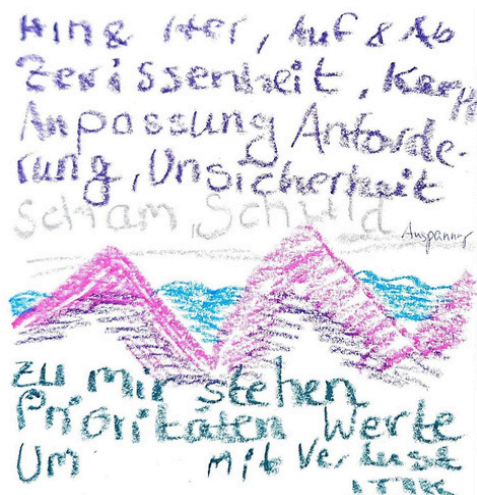 Hin & Her, Auf & Ab
Zerissenheit,
Anpassung Anforde-
rung, Unsicherheit
Scham, Schuld
zu mir stehen
Prioritäten Werte
Um mit Verlust